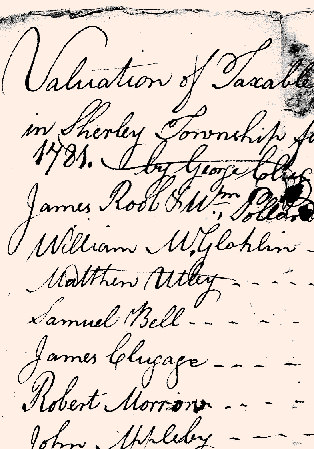 Valuation of Taxable
in Sherley Township
1781. by George
James Root & Wm. Pollard
William McGlohlin
Matthew Utley
Samuel Bell
James Clugage
Robert Morrow
John Appleby